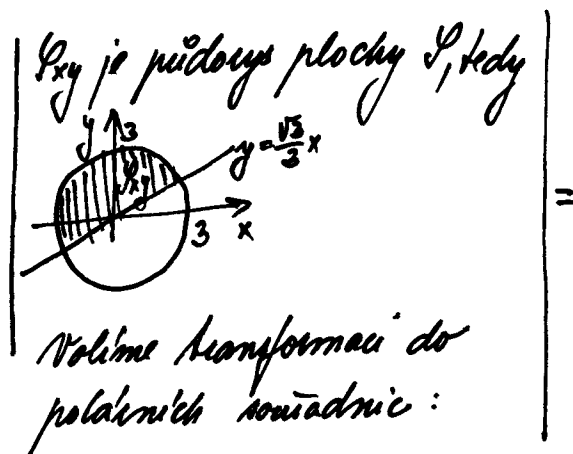 𝒮xy je půdorys plochy 𝒮, tedy
y
3
y = √3/3 x
𝒮xy
0
3
x
=
Volíme transformaci do
polárních souřadnic :